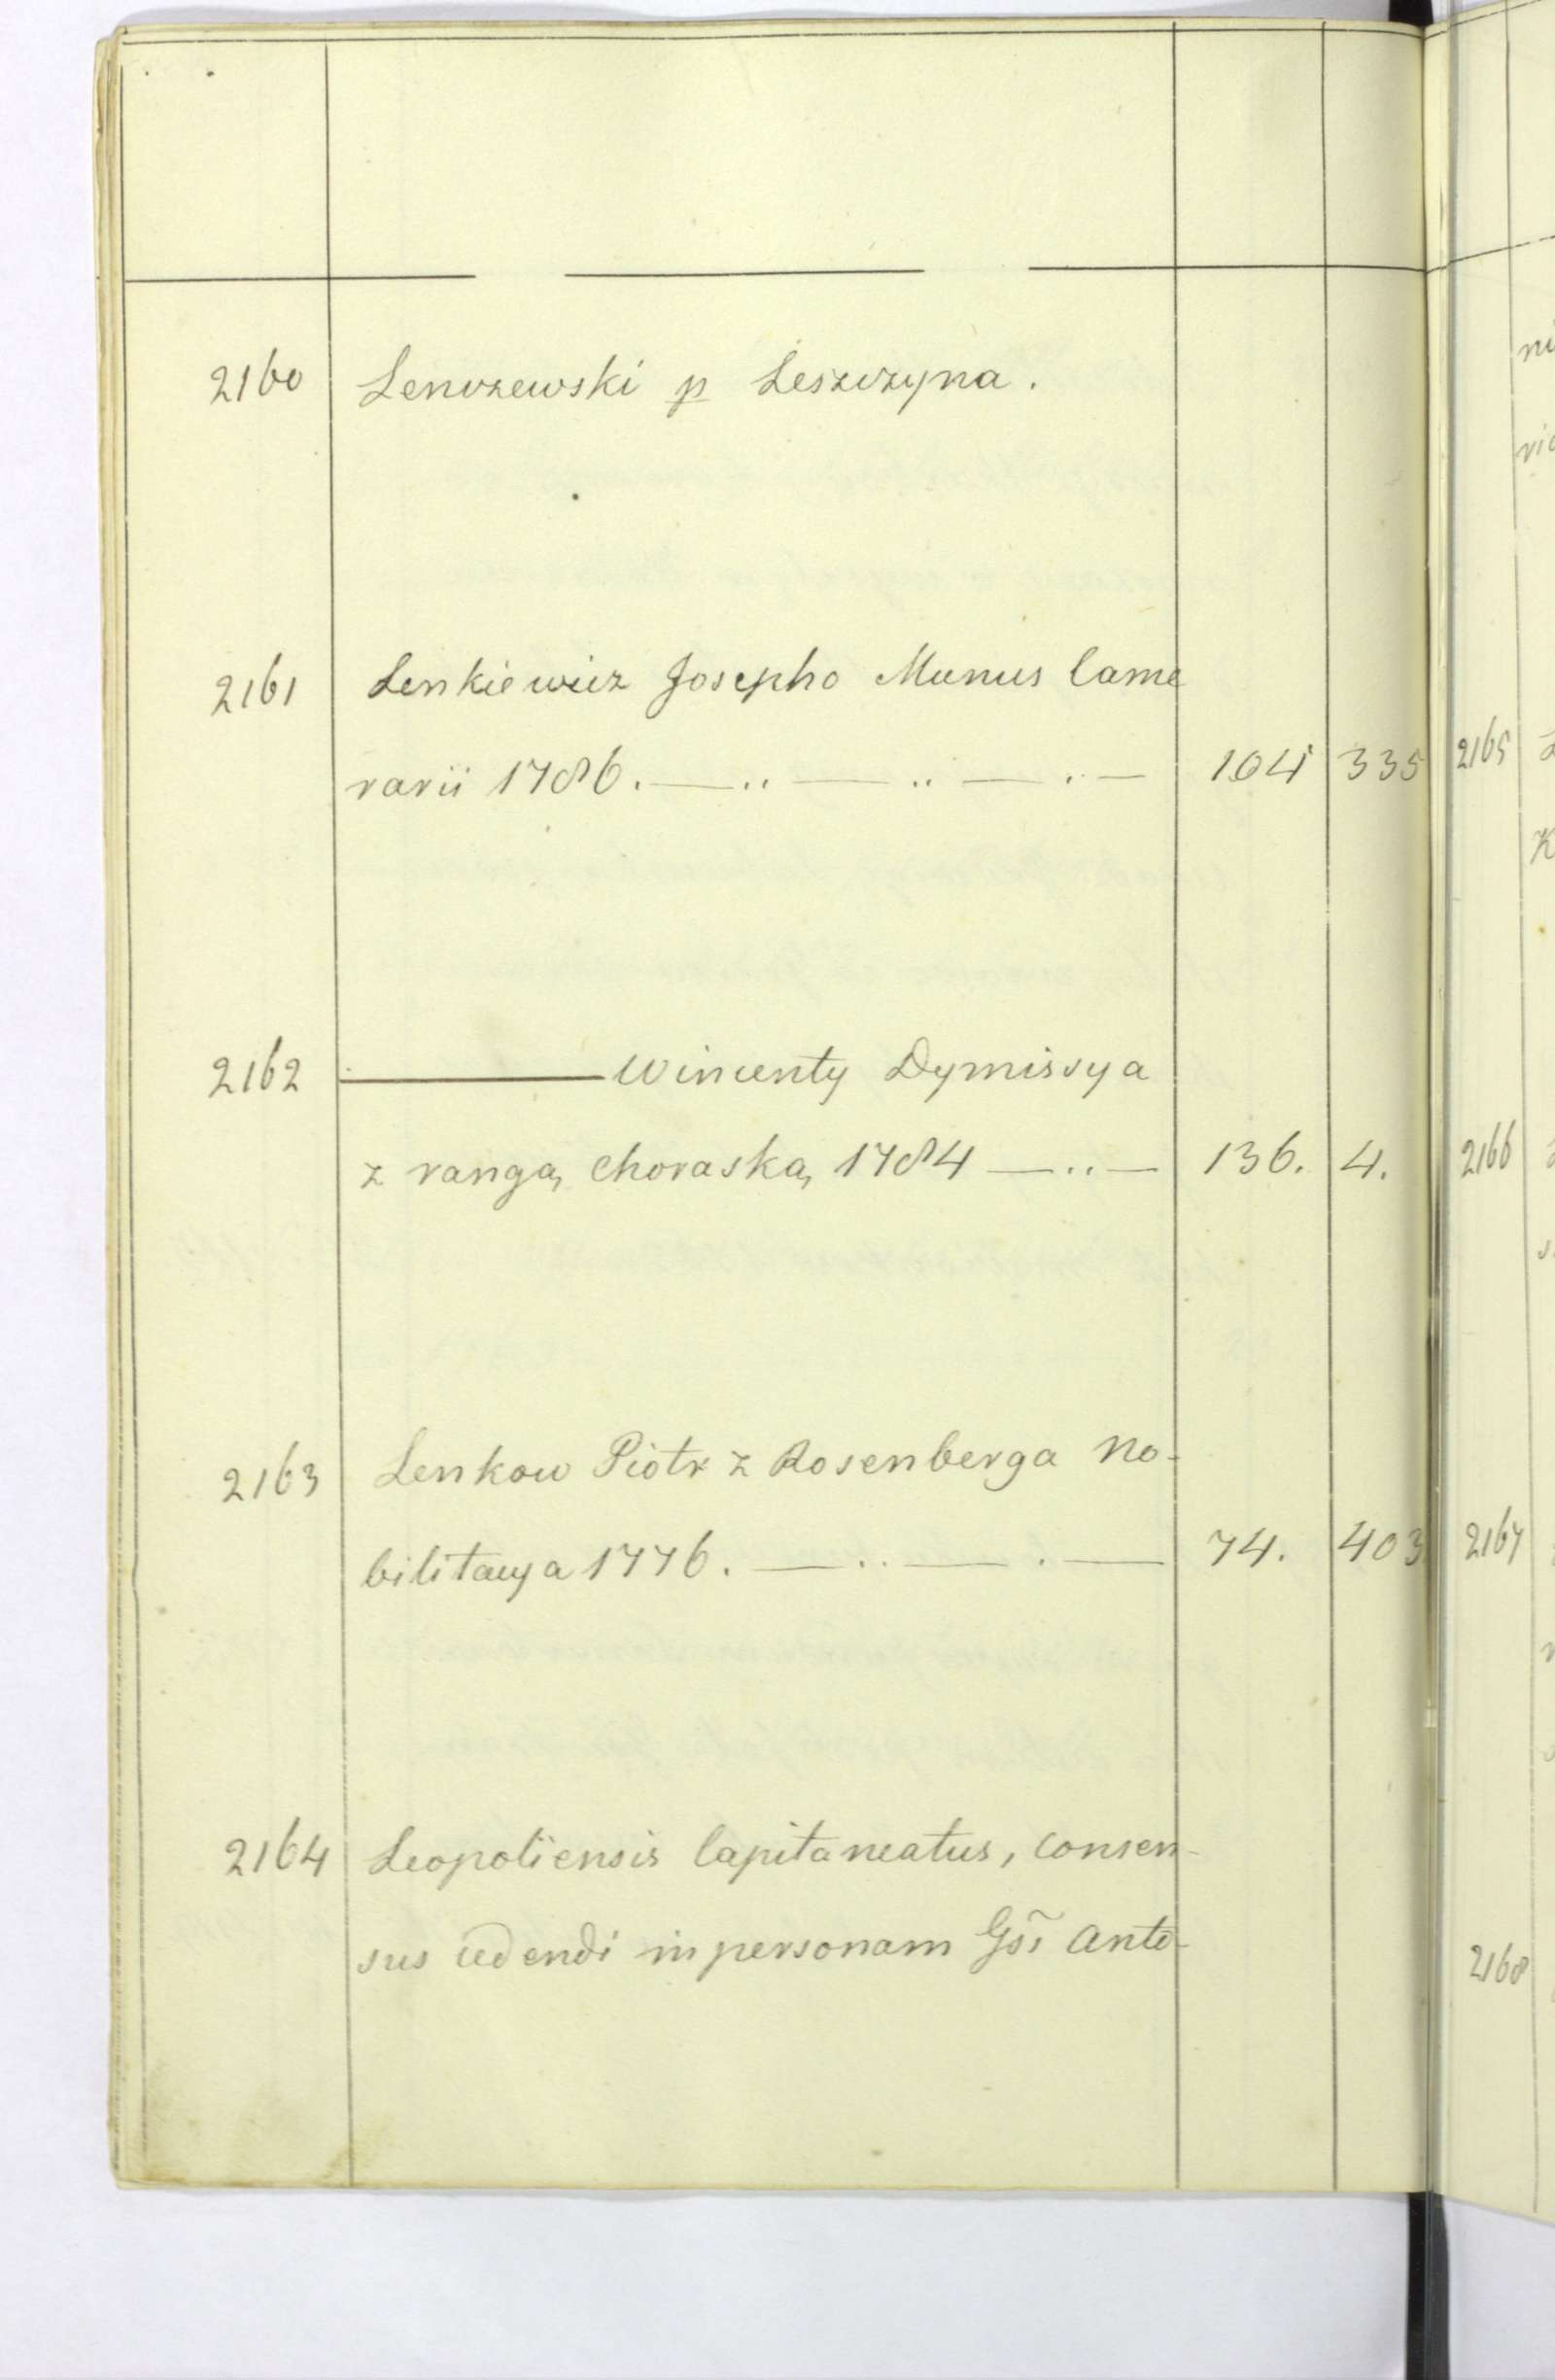 2160 Lenczewski p Leszczyna.
2161 Lenkiewicz Josepho Munus Came
rarii 1786. — .. — .. — .. — 104 335
2162 ——— Wincenty Dymissya
z rangą choraską 1784 — .. — 136. 4.
2163 Lenkow Piotr z Rosenberga No-
bilitacya 1776. — .. — . — 74. 403
2164 Leopoliensis Capitaneatus, consen-
sus cedendi in personam Gōsi Anto-
2165
2166
2167
2168